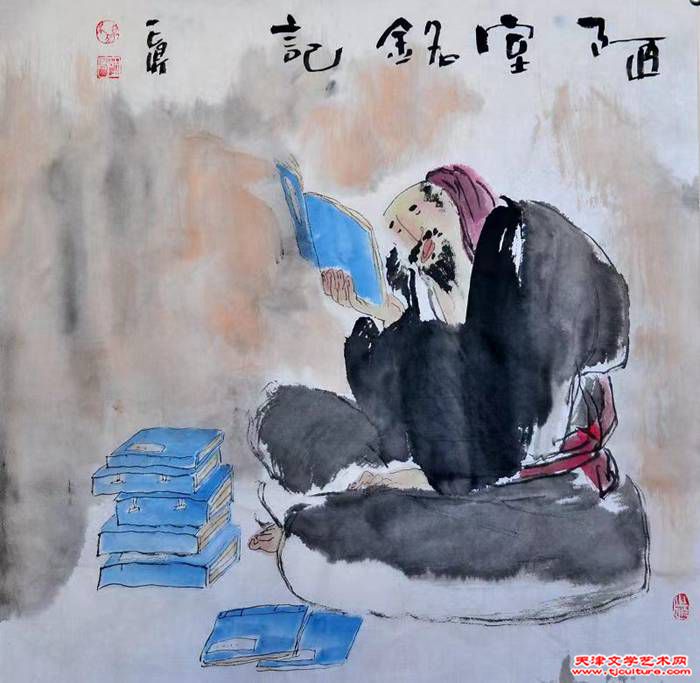 陋室銘記
天津文学艺术网
www.tjculture.com